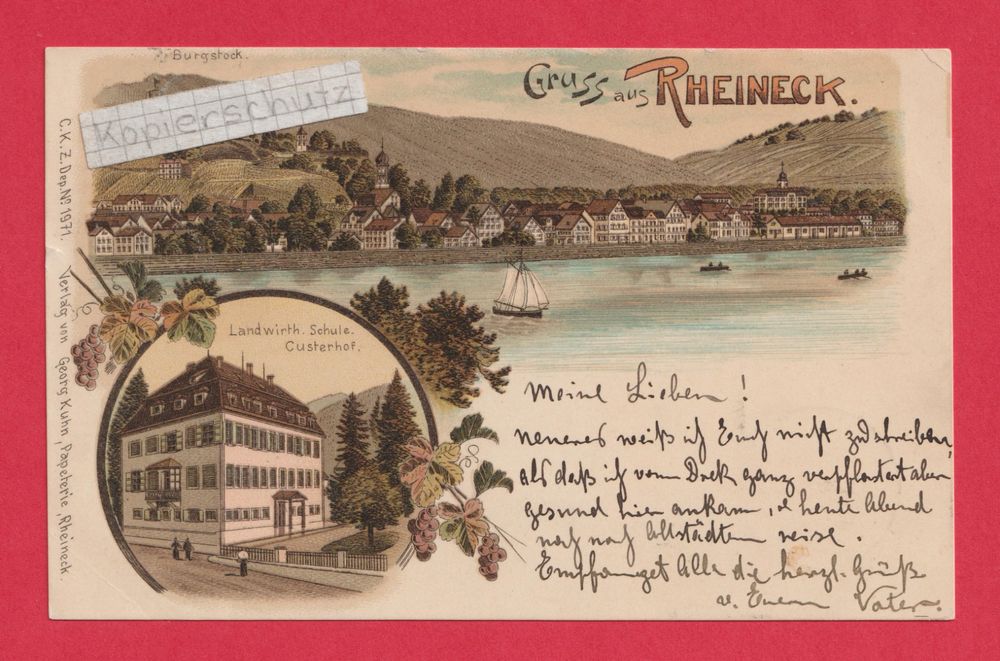 Burgstock.
Gruss aus RHEINECK.
Kopierschutz
C.K.Z.Dep.No 1971. Verlag von Georg Kuhn, Papeterie, Rheineck.
Landwirth. Schule.
Custerhof.
Meine Lieben!
neueres weiß ich Euch nicht zu schreiben,
als daß ich vom Dreck ganz verpflastert aber
gesund hier ankam, u. heute Abend
noch nach Altstädten reise.
Empfanget Alle die herzl. Grüß
v. Euerm Vater.